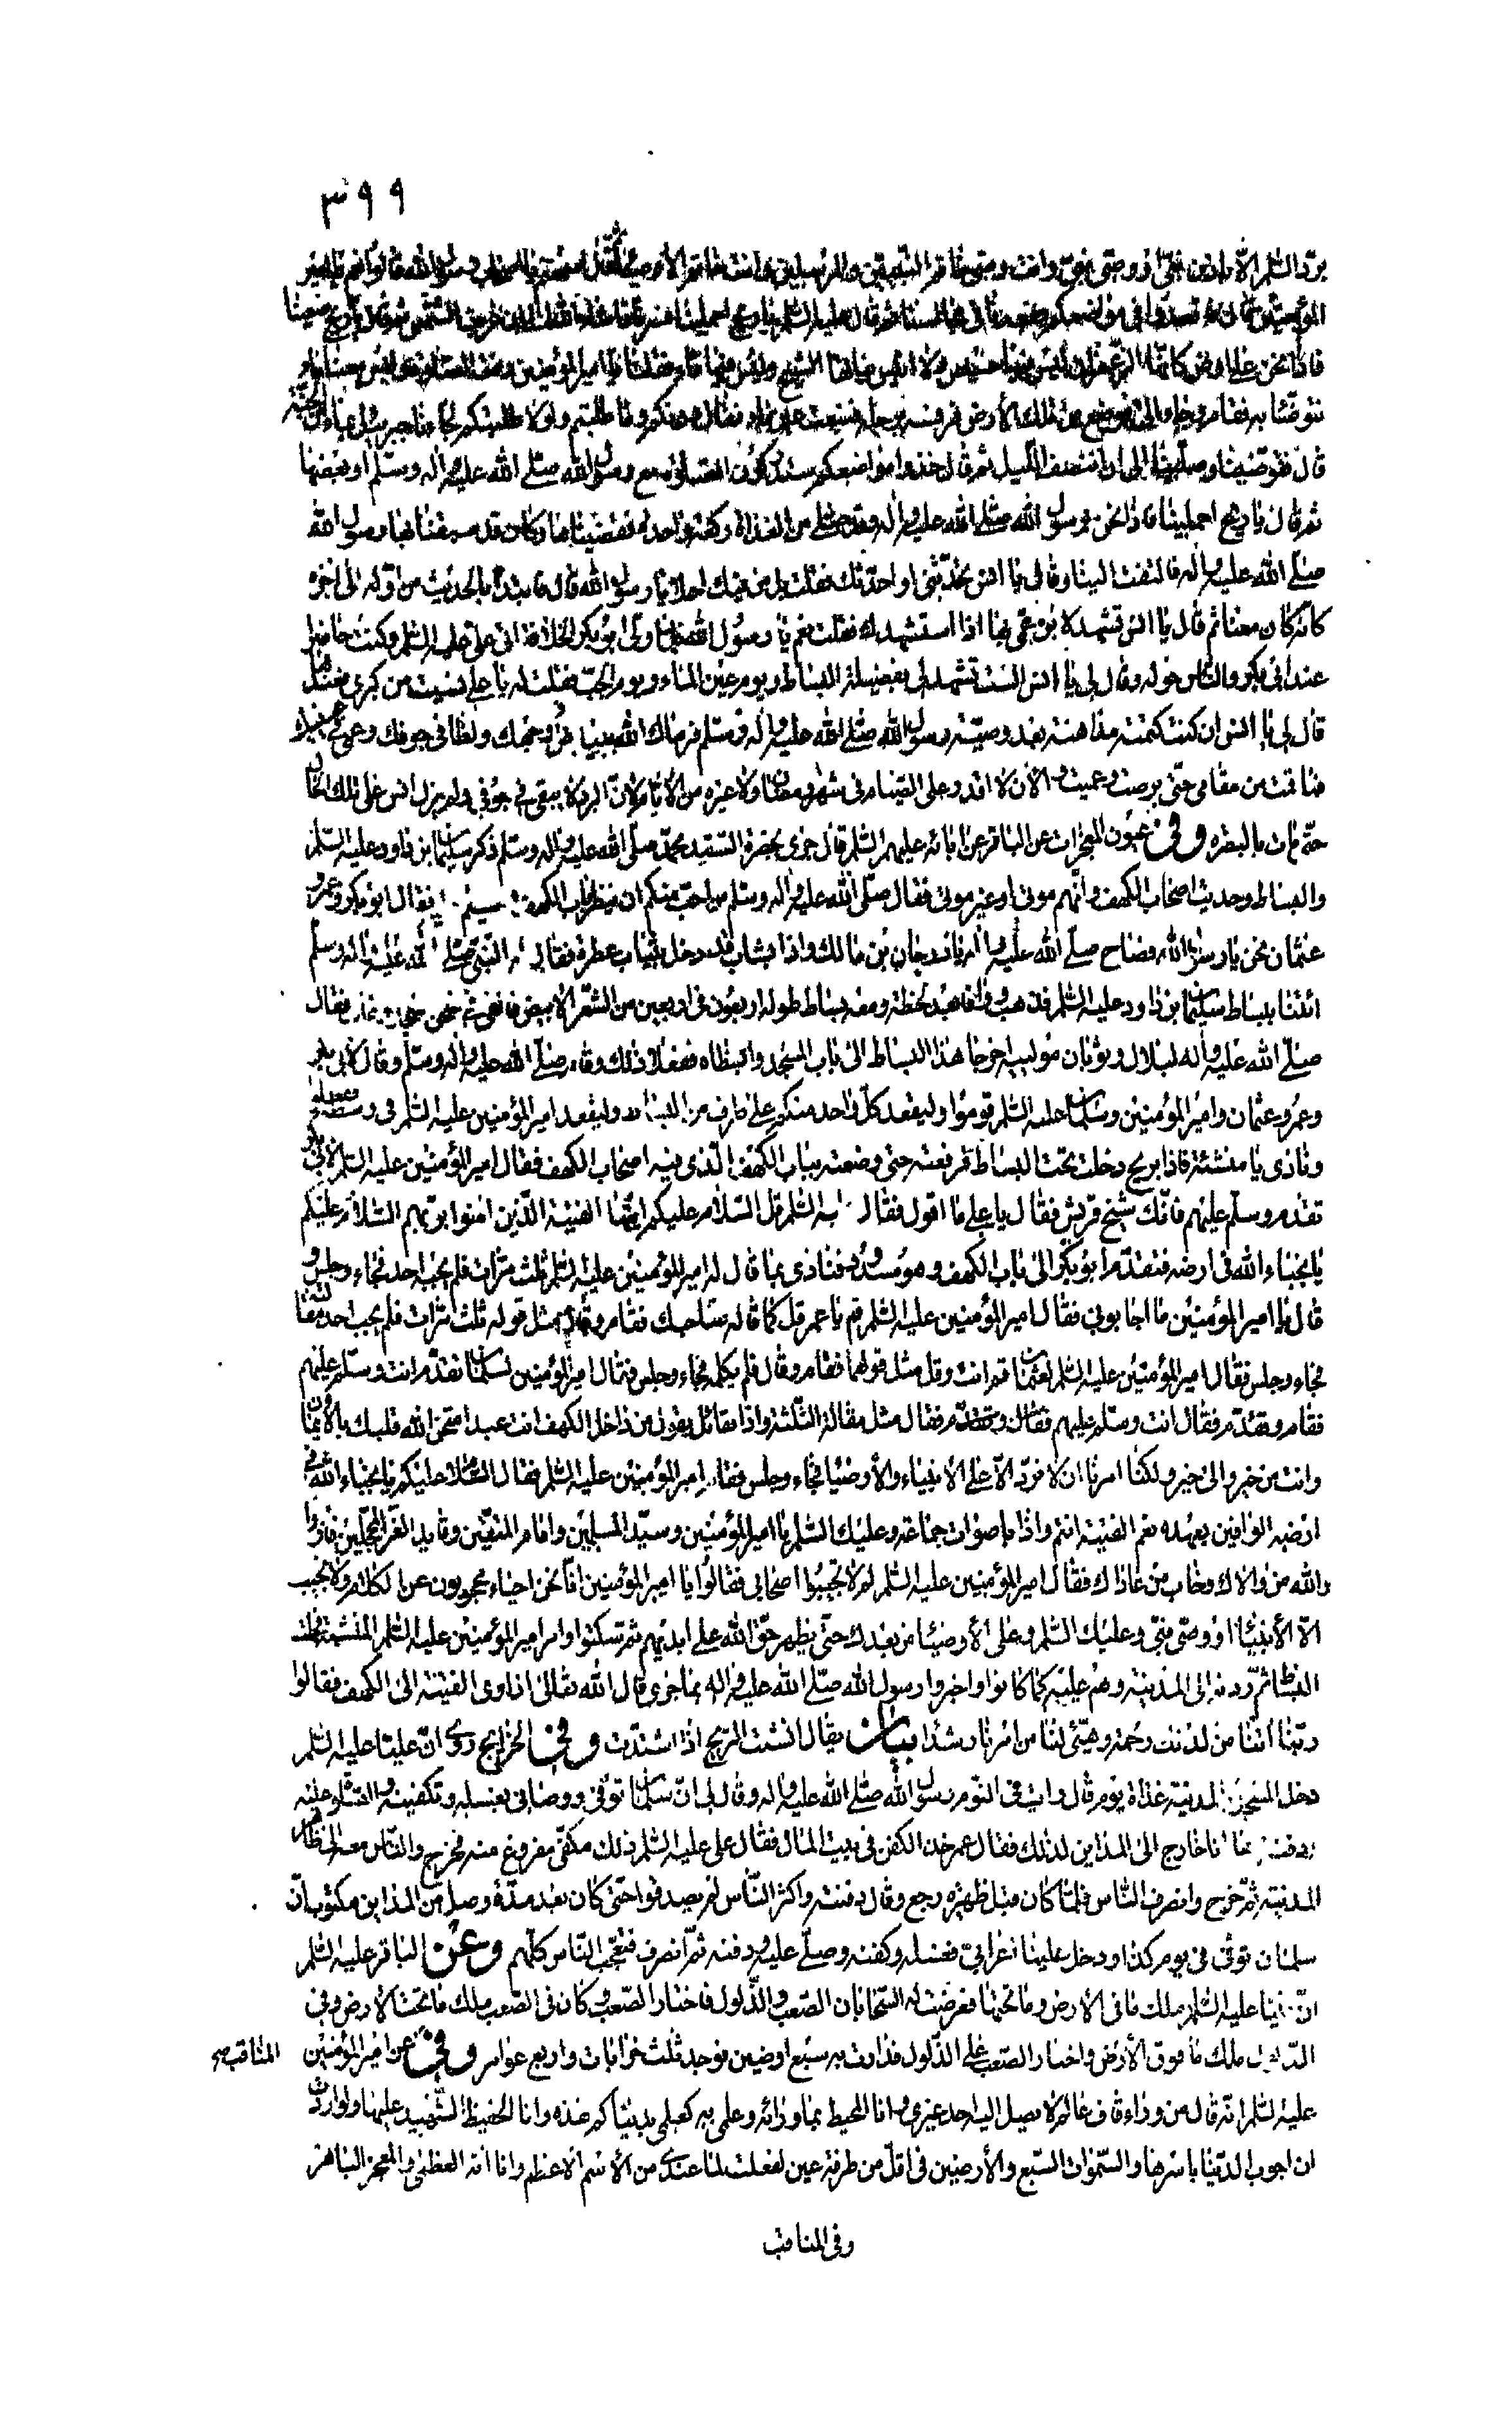 ٣٩٩
يردّ السّلم الّا باذن نبيّ او وصيّ نبيّ وانت وصيّ خاتم النّبيّين والمرسلين وانت خاتم الأوصياء ثم قال اسمعتم يا اصحاب رسول الله قالوا نعم يا امير
المؤمنين قال فخذوا مواضعكم فقعدنا في مجالسنا ثم قال عليه السّلم يا ريح احملينا فسرنا ما شاء الله الى ان غربت الشّمس ثم قال يا ريح ضعينا
فاذا نحن على ارض كانّها الزّعفران ليس بها حسيس ولا انيس نباتها الشّيح وليس فيها ماء فقلنا يا امير المؤمنين دنت الصّلوة وليس معنا ماء
نتوضّأ به فقام وجاء الى موضع من تلك الأرض فرفسه برجله فنبعت عين ماء فقال دونكم وما طلبتم ولولا طلبتكم لجاءنا جبرئيل بماء من الجنّة
قال فتوضّينا وصلّينا الى ان انتصف اللّيل ثم قال خذوا مواضعكم ستدركون الصّلوة مع رسول الله صلّى الله عليه واله وسلّم او بعضها
ثم قال يا ريح احملينا فاذا نحن برسول الله صلّى الله عليه واله وقد صلّى من الغداة ركعة واحدة فقضيناها وكان قد سبقنا بها رسول الله
صلّى الله عليه واله فالتفت الينا وقال يا انس تحدّثني او احدّثك فقلت بل من فيك احلى يا رسول الله قال فابتدأ بالحديث من اوّله الى اخره
كانّه كان معنا ثم قال يا انس تشهد لابن عمّي بها اذا استشهدك فقلت نعم يا رسول الله فلمّا ولّي ابو بكر الخلافة اتى عليّ عليه السّلم وكنت حاضرا
عند ابي بكر والنّاس حوله وقال لي يا انس الست تشهد لي بفضيلة البساط ويوم عين الماء ويوم الجبّ فقلت له يا علي نسيت من كبري فعندها
قال لي يا انس ان كنت كتمته مداهنة بعد وصيّة رسول الله صلّى الله عليه واله وسلّم فرماك الله ببياض في وجهك ولظا في جوفك وعمى في عينيك
فما قمت من مقامي حتّى برصت وعميت والان لا اقدر على الصّيام في شهر رمضان ولا غيره من الأيّام لانّ الزاد لا يبقى في جوفي ولم يزل انس على تلك الحال
حتّى مات بالبصره وفي عيون المعجزات عن الباقر عن ابائه عليهم السّلم قال جرى بحضرة السّيّد محمّد صلّى الله عليه واله وسلّم ذكر سليمان بن داود عليه السّلم
والبساط وحديث اصحاب الكهف وانّهم موتى او غير موتى فقال صلّى الله عليه واله وسلّم من احبّ منكم ان ينظر باب الكهف ويسلم فقال ابو بكر وعمر و
عثمان نحن يا رسول الله فصاح صلّى الله عليه واله يا درجان بن مالك واذا بشاب قد دخل بثياب عطرة فقال له النّبي صلّى الله عليه واله وسلّم
ائتنا ببساط سليمان بن داود عليه السّلم فذهب ووافى بعد لحظة ومعه بساط طوله اربعون في اربعين من الشّعر الابيض فقال
صلّى الله عليه واله لبلال وثوبان مولييه اخرجا هذا البساط الى باب المسجد وابسطاه ففعلا ذلك وقام صلّى الله عليه واله وسلّم وقال لابي بكر
وعمر وعثمان وامير المؤمنين وسلمان عليه السّلم قوموا وليقعد كلّ واحد منكم على طرف من البساط وليقعد امير المؤمنين عليه السّلم في وسطه ففعلوا
ونادى يا منشئة فاذا بريح دخلت تحت البساط فرفعته حتى وضعته بباب الكهف الّذي فيه اصحاب الكهف فقال امير المؤمنين عليه السّلم لابي بكر
تقدّم وسلّم عليهم فانّك شيخ قريش فقال يا علي ما اقول فقال عليه السّلم قل السّلام عليكم ايّتها الفتية الّذين امنوا بربّهم السّلام عليكم
يا نجباء الله في ارضه فتقدّم ابو بكر الى باب الكهف وهو مسدود فنادى بما قال له امير المؤمنين عليه السّلم ثلث مرّات فلم يجبه احد فجاء وجلس و
قال يا امير المؤمنين ما اجابوني فقال امير المؤمنين عليه السّلم قم يا عمر قل كما قاله صاحبك فقام وقال مثل قوله ثلث مرّات فلم يجب احد مقالته
فجاء وجلس فقال امير المؤمنين عليه السّلم لعثمان قم انت وقل مثل قولهما فقام وقال فلم يكلّمه فجاء وجلس فقال امير المؤمنين لسلمان تقدّم انت وسلّم عليهم
فقام وتقدّم فقال انت وسلّم عليهم فقال وتقدّم فقال مثل مقالة الثّلثة واذا بقائل يقول من داخل الكهف انت عبد امتحن الله قلبك بالأيمان
وانت من خير والى خير ولكنّا امرنا ان لا نردّ الّا على الأنبياء والأوصياء فجاء وجلس فقام امير المؤمنين عليه السّلم فقال السّلام عليكم يا نجباء الله في
ارضه الوافين بعهده نعم الفتية انتم واذا باصوات جماعة وعليك السّلم يا امير المؤمنين وسيّد المسلمين وامام المتقين وقايد الغرّ المحجّلين فاز
والله من والاك وخاب من عاداك فقال امير المؤمنين عليه السّلم لم لا تجيبوا اصحابي فقالوا يا امير المؤمنين انّا نحن احياء محجوبون عن الكلام ولا نجيب
الّا الأنبياء او وصيّ نبيّ وعليك السّلم وعلى الأوصياء من بعدك حتّى يظهر حقّ الله على ايديهم ثم سكتوا وامر امير المؤمنين عليه السّلم المنشئة فحملت
البساط ثمّ ردّته الى المدينة وهم عليه كما كانوا واخبروا رسول الله صلّى الله عليه واله بما جرى قال الله تعالى اذ اوى الفتية الى الكهف فقالوا
ربّنا اتنا من لدنك رحمة وهيّئ لنا من امرنا رشدا بيان يقال انشت الريح اذا اشتدّت وفي الخرايج روى انّ عليّا عليه السّلم
دخل المسجد بالمدينة غداة يوم قال رايت في النّوم رسول الله صلّى الله عليه واله وقال لي انّ سلمان توفّي ووصّاني بغسله وتكفينه والصّلوة عليه
ودفنه وها انا خارج الى المداين لذلك فقال عمر خذ الكفن من بيت المال فقال علي عليه السّلم ذلك مكفّى مفروغ منه فخرج والنّاس معه الى ظاهر
المدينة ثمّ خرج وانصرف النّاس فلمّا كان قبل ظهيرة رجع وقال دفنته واكثر النّاس لم يصدقوا حتّى كان بعد مدّة وصل من المداين مكتوب انّ
سلمان توفّى في يوم كذا ودخل علينا اعرابيّ فغسله وكفنه وصلّى عليه ودفنه ثمّ انصرف فتعجّب النّاس كلّهم وعن الباقر عليه السّلم
انّ عليا عليه السّلم ملك ما في الأرض وما تحتها فعرضت له السّحابان الصّعب والذّلول فاختار الصّعب وكان في الصّعب ملك ما تحت الأرض وفي
الذّلول ملك ما فوق الأرض واختار الصّعب على الذّلول فدارت به سبع ارضين فوجد ثلث خرابات واربع عوامر وفي عن امير المؤمنين المناقب صح
عليه السّلم انّه قال من وراء قاف عالم لا يصل اليه احد غيري وانا المحيط بما ورائه وعلمي به كعلمي بدنياكم هذه وانا الحفيظ الشّهيد عليها ولو اردت
ان اجوب الدّنيا باسرها والسّموات السّبع والأرضين في اقلّ من طرفة عين لفعلت لما عندي من الأسم الأعظم وانا الاية العظمى والمعجز الباهر
وفي المناقب